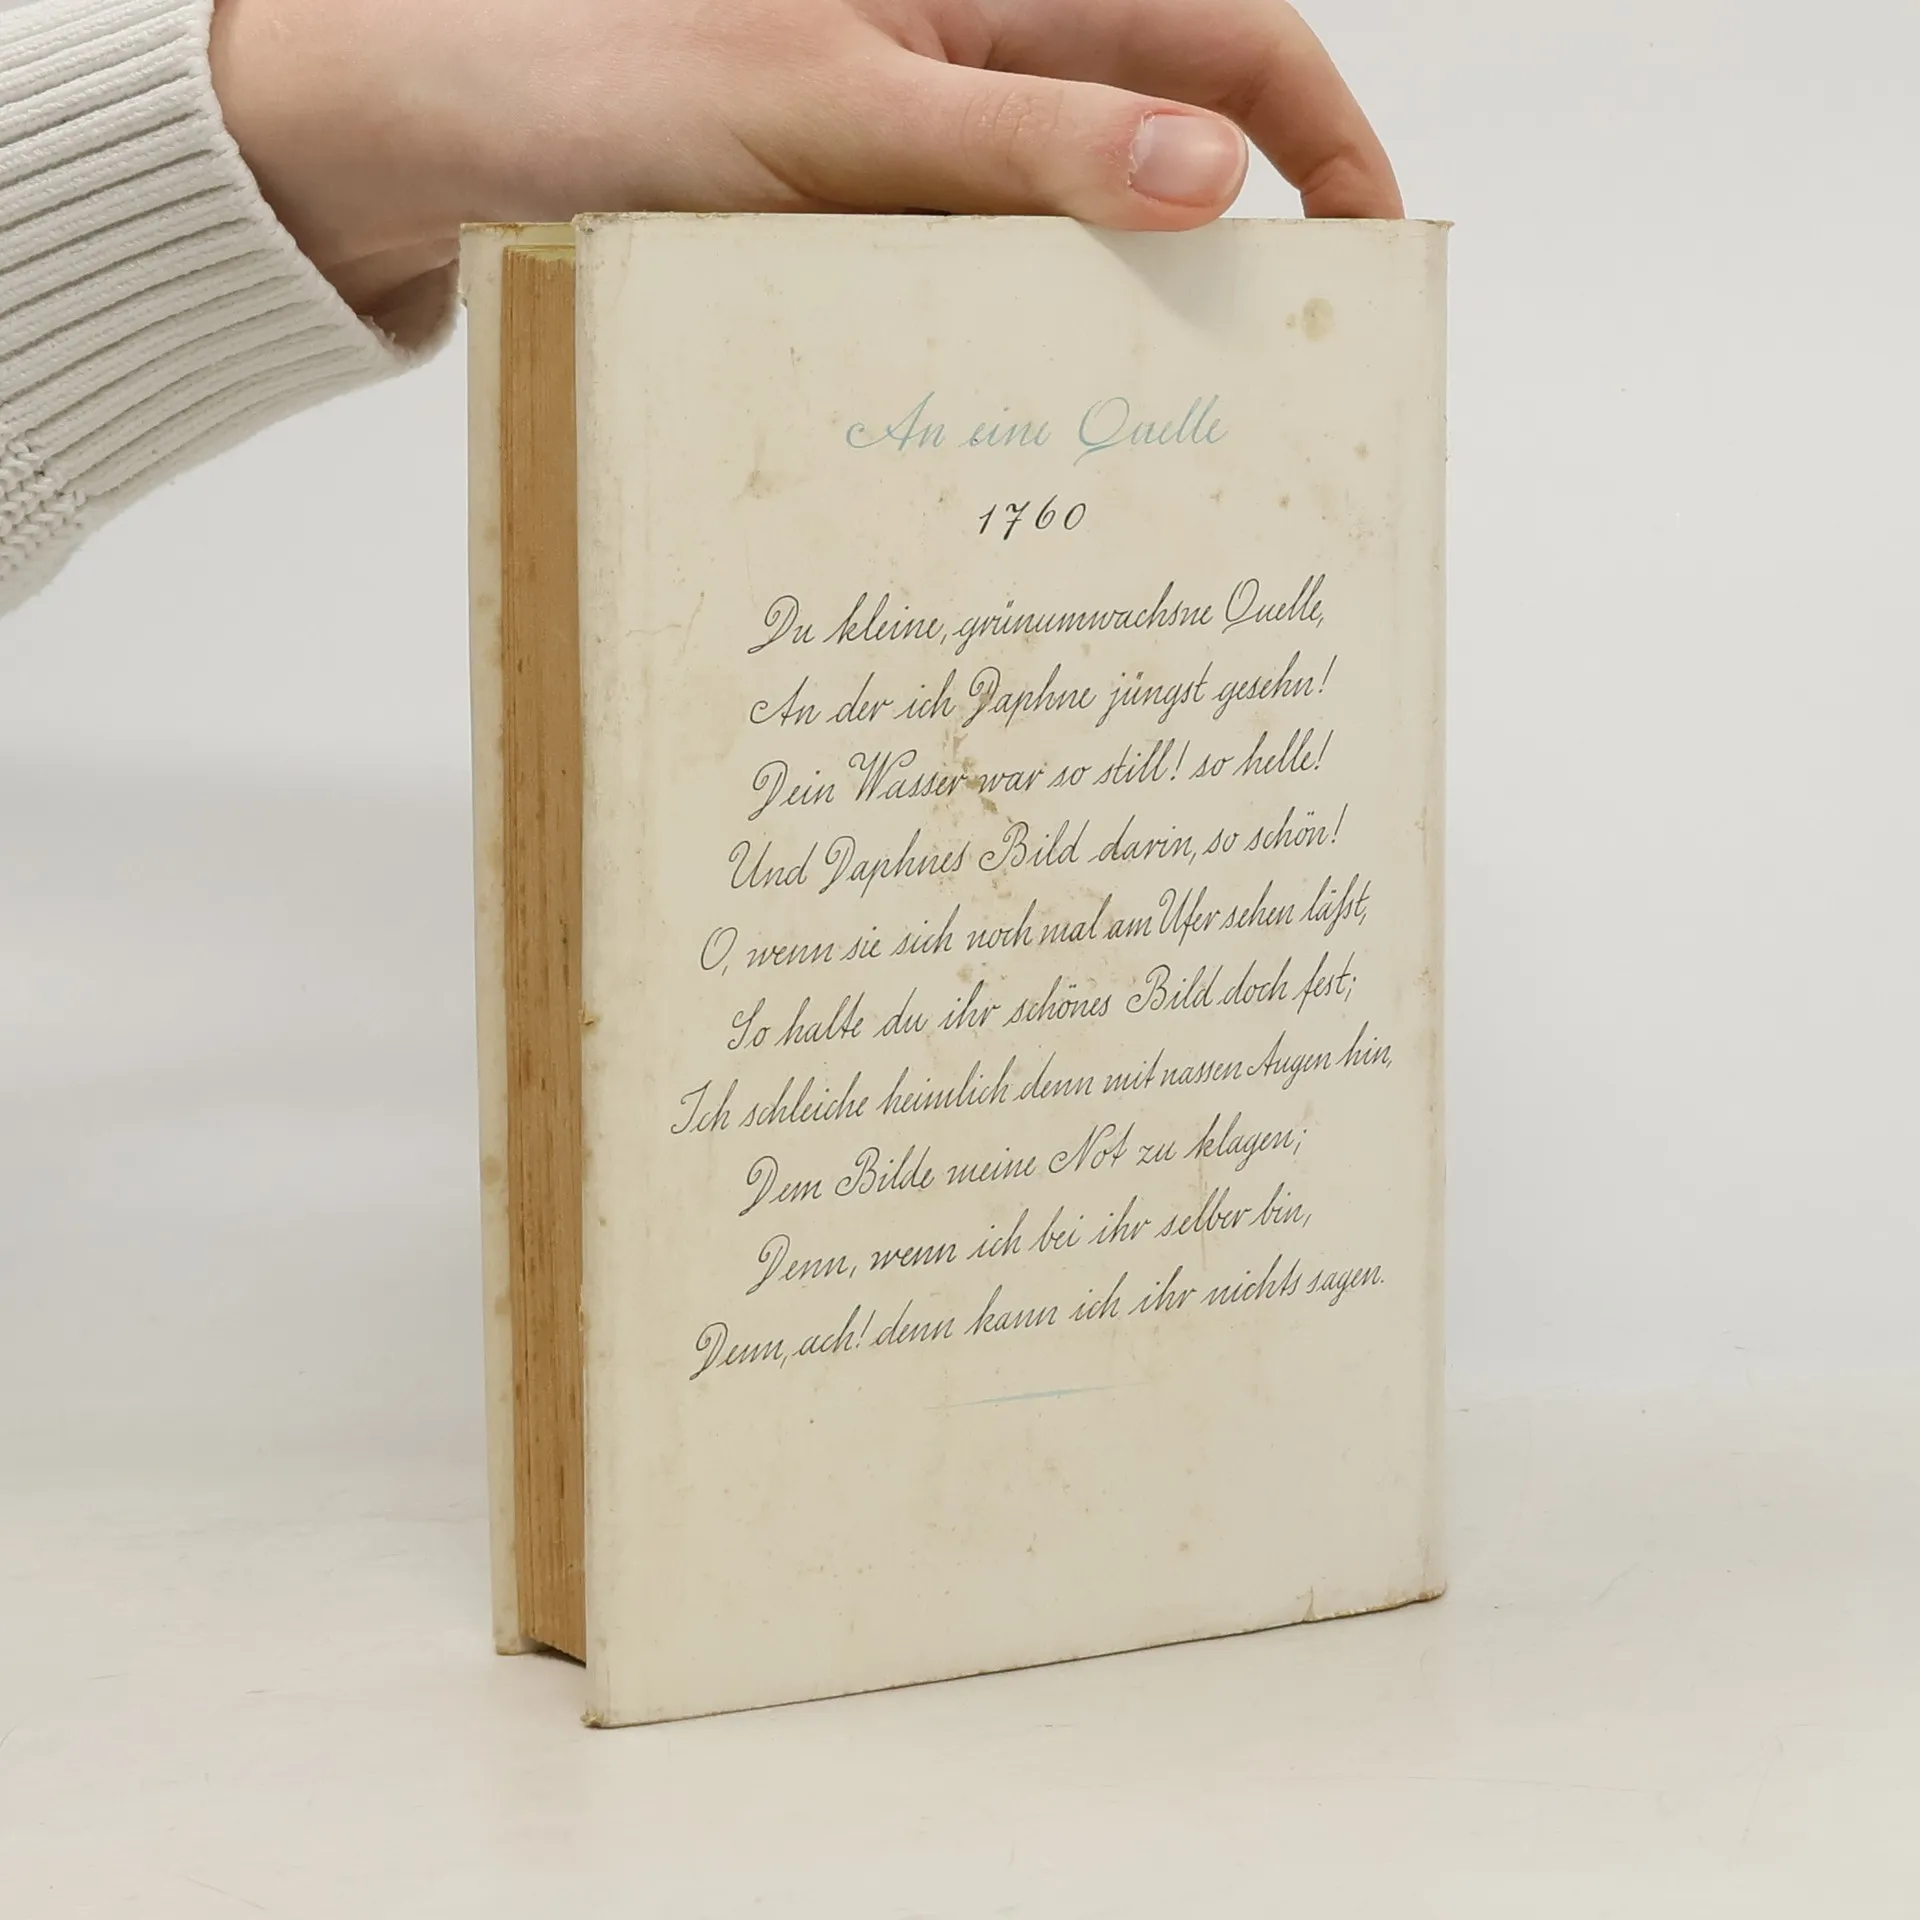 An eine Quelle
1760
Du kleine, grünumwachsne Quelle,
An der ich Daphne jüngst gesehn!
Dein Wasser war so still! so helle!
Und Daphnes Bild darin, so schön!
O, wenn sie sich noch mal am Ufer sehen läßt,
So halte du ihr schönes Bild doch fest;
Ich schleiche heimlich denn mit nassen Augen hin,
Dem Bilde meine Not zu klagen;
Denn, wenn ich bei ihr selber bin,
Denn, ach! denn kann ich ihr nichts sagen.